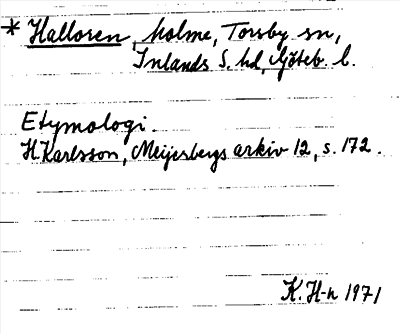 * Halloren, holme, Torsby sn,
Inlands S. hd, Göteb. l.
Etymologi.
H Karlsson, Meijerbergs arkiv 12, s. 172.
K. H-n 1971